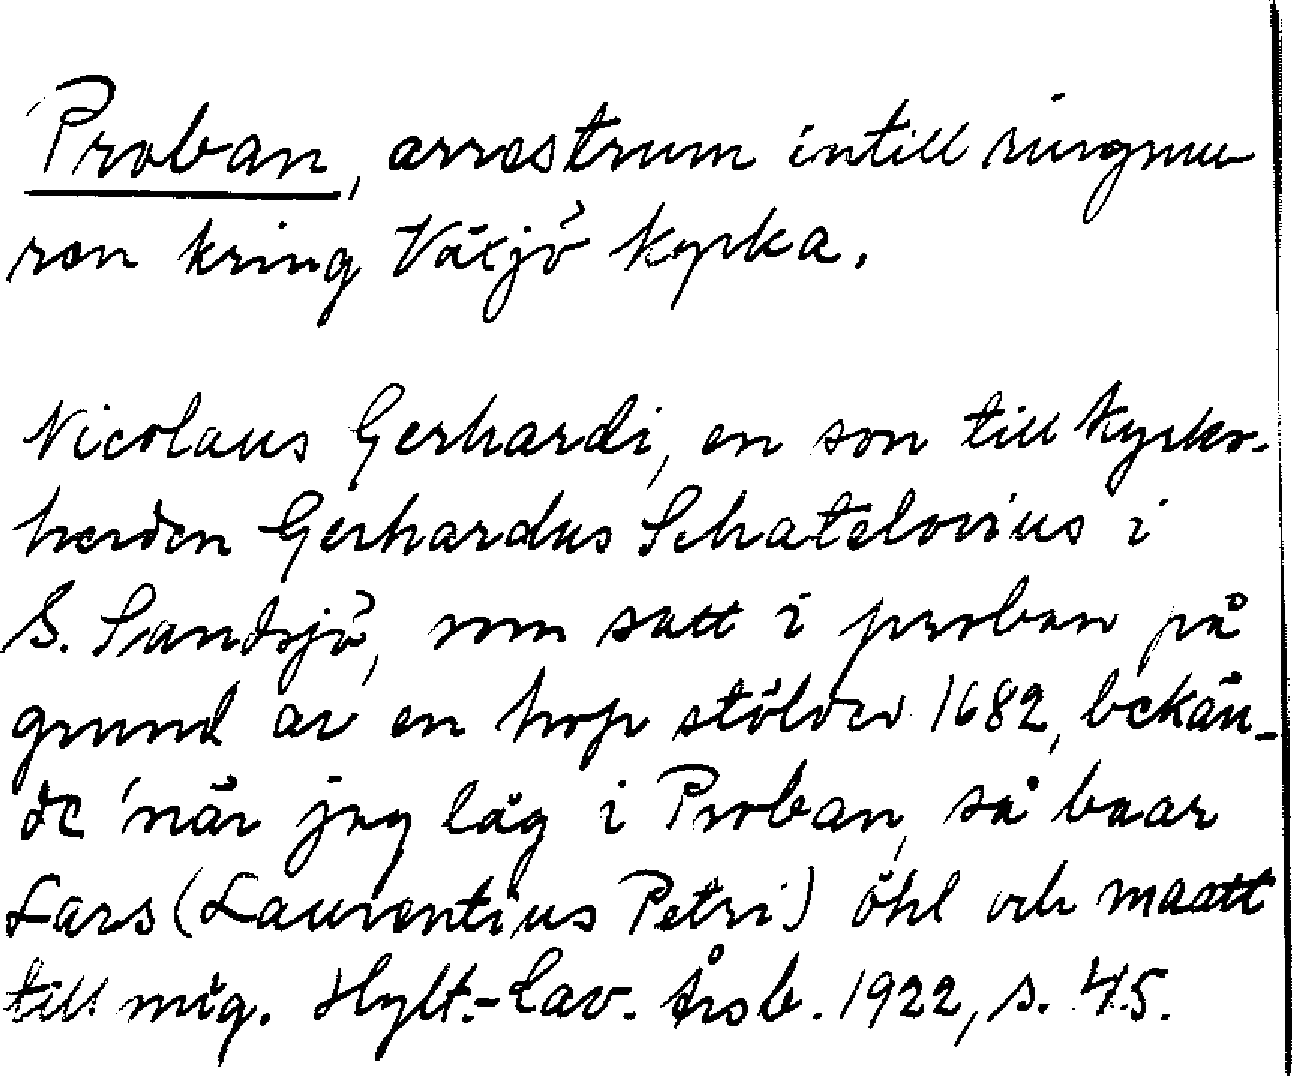 Proban, arrestrum intill ringmu
ren kring Växjö kyrka.
Nicolaus Gerhardi, en son till kyrko-
herden Gerhardus Schatelovius i
S. Sandsjö, som satt i proban på
grund av en hop stölder 1682, bekän-
de 'när jag låg i Proban, så baar
Lars (Laurentius Petri) öhl och maatt
till mig. Hylt.-Cav. årsb. 1922, s. 45.